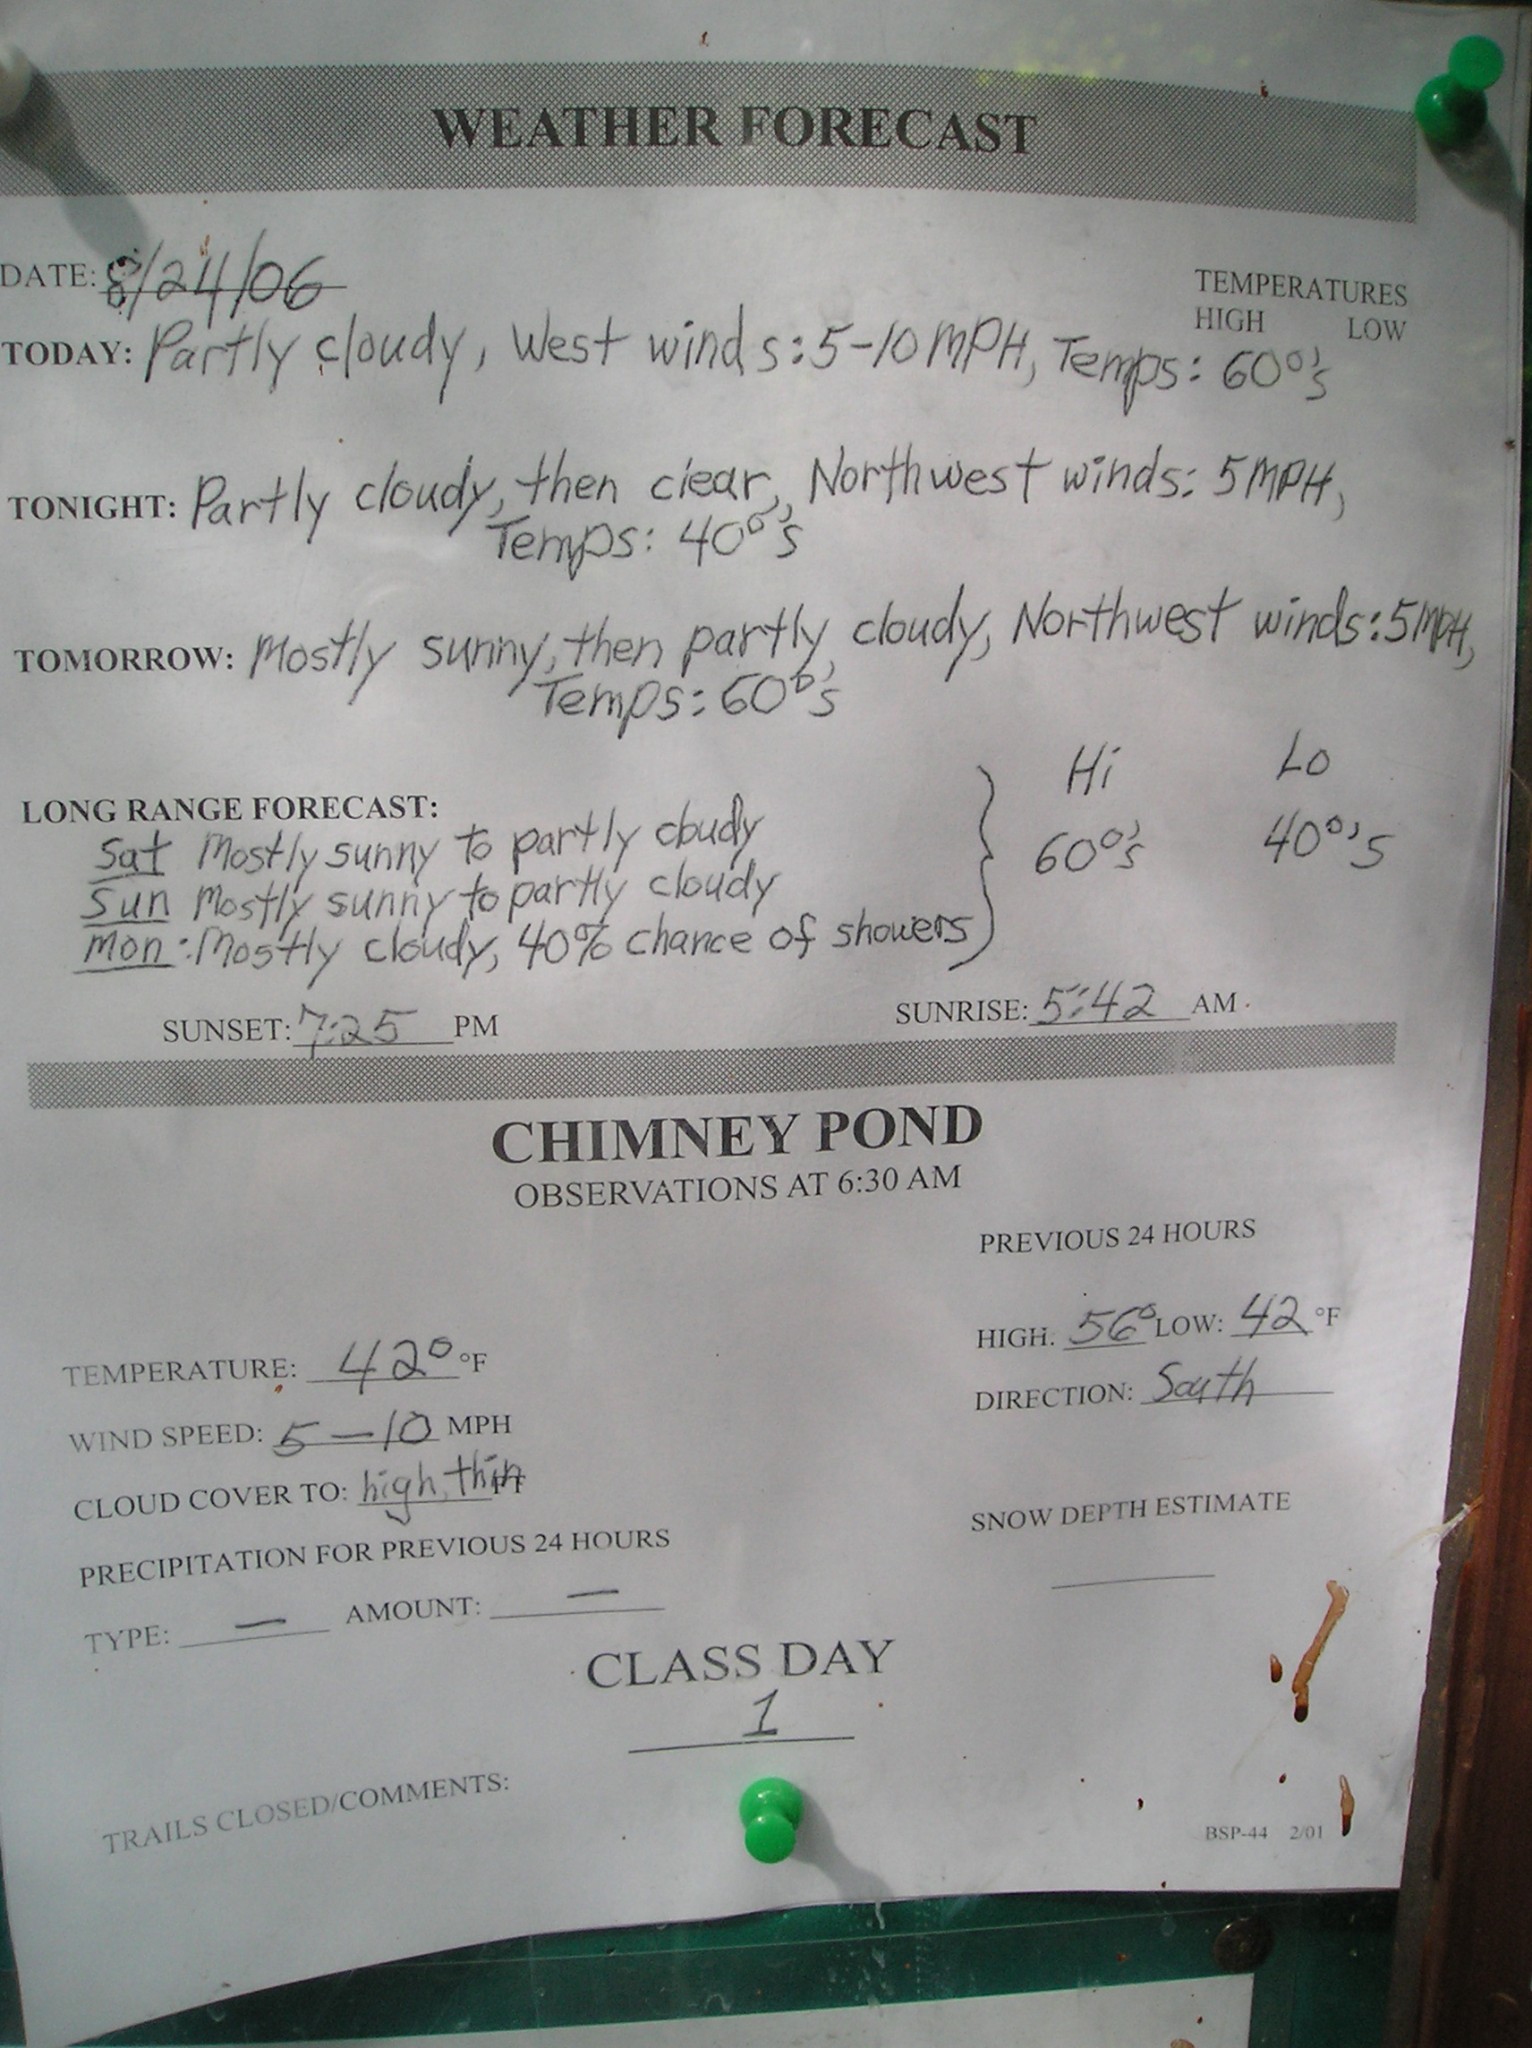 WEATHER FORECAST
DATE: 8/24/06
TEMPERATURES
HIGH LOW
TODAY: Partly cloudy, West winds: 5-10 MPH, Temps: 60°'s
TONIGHT: Partly cloudy, then clear, Northwest winds: 5 MPH,
Temps: 40°'s
TOMORROW: Mostly sunny, then partly cloudy, Northwest winds: 5 MPH,
Temps: 60°'s
Hi Lo
LONG RANGE FORECAST:
Sat Mostly sunny to partly cloudy 60°'s 40°'s
Sun Mostly sunny to partly cloudy
Mon: Mostly cloudy, 40% chance of showers
SUNSET: 7:25 PM SUNRISE: 5:42 AM
CHIMNEY POND
OBSERVATIONS AT 6:30 AM
PREVIOUS 24 HOURS
TEMPERATURE: 42° °F HIGH. 56° LOW: 42 °F
WIND SPEED: 5-10 MPH DIRECTION: South
CLOUD COVER TO: high, thin FT
SNOW DEPTH ESTIMATE
PRECIPITATION FOR PREVIOUS 24 HOURS
TYPE: — AMOUNT: —
CLASS DAY
1
TRAILS CLOSED/COMMENTS:
BSP-44 2/01